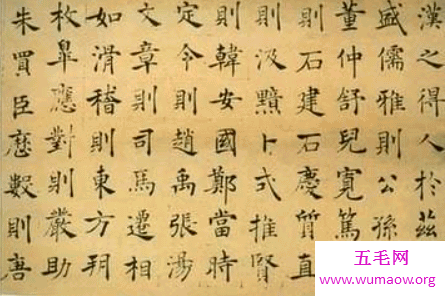 漢之得人於茲
盛儒雅則公孫
董仲舒兒寬篤
則石建石慶質直
則汲黯卜式推賢
則韓安國鄭當時
定令則趙禹張湯
文章則司馬遷相
如滑稽則東方朔
枚皋應對則嚴助
朱買臣歷數則唐
五毛网
www.wumaow.org